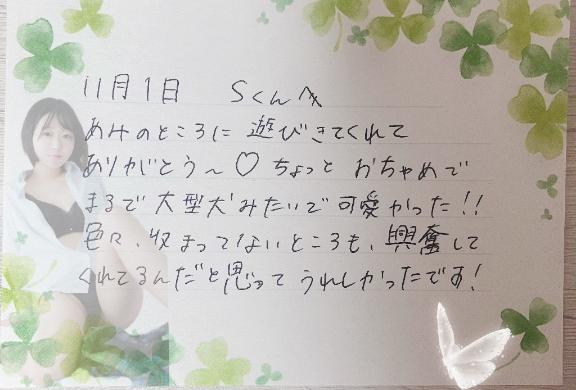 11月1日 Sくんへ
あみのところに 遊びきてくれて
ありがとう〜♡ ちょっと おちゃめで
まるで 大型犬みたいで可愛かった!!
色々、収まってないところも、興奮して
くれてるんだと思って うれしかったです!